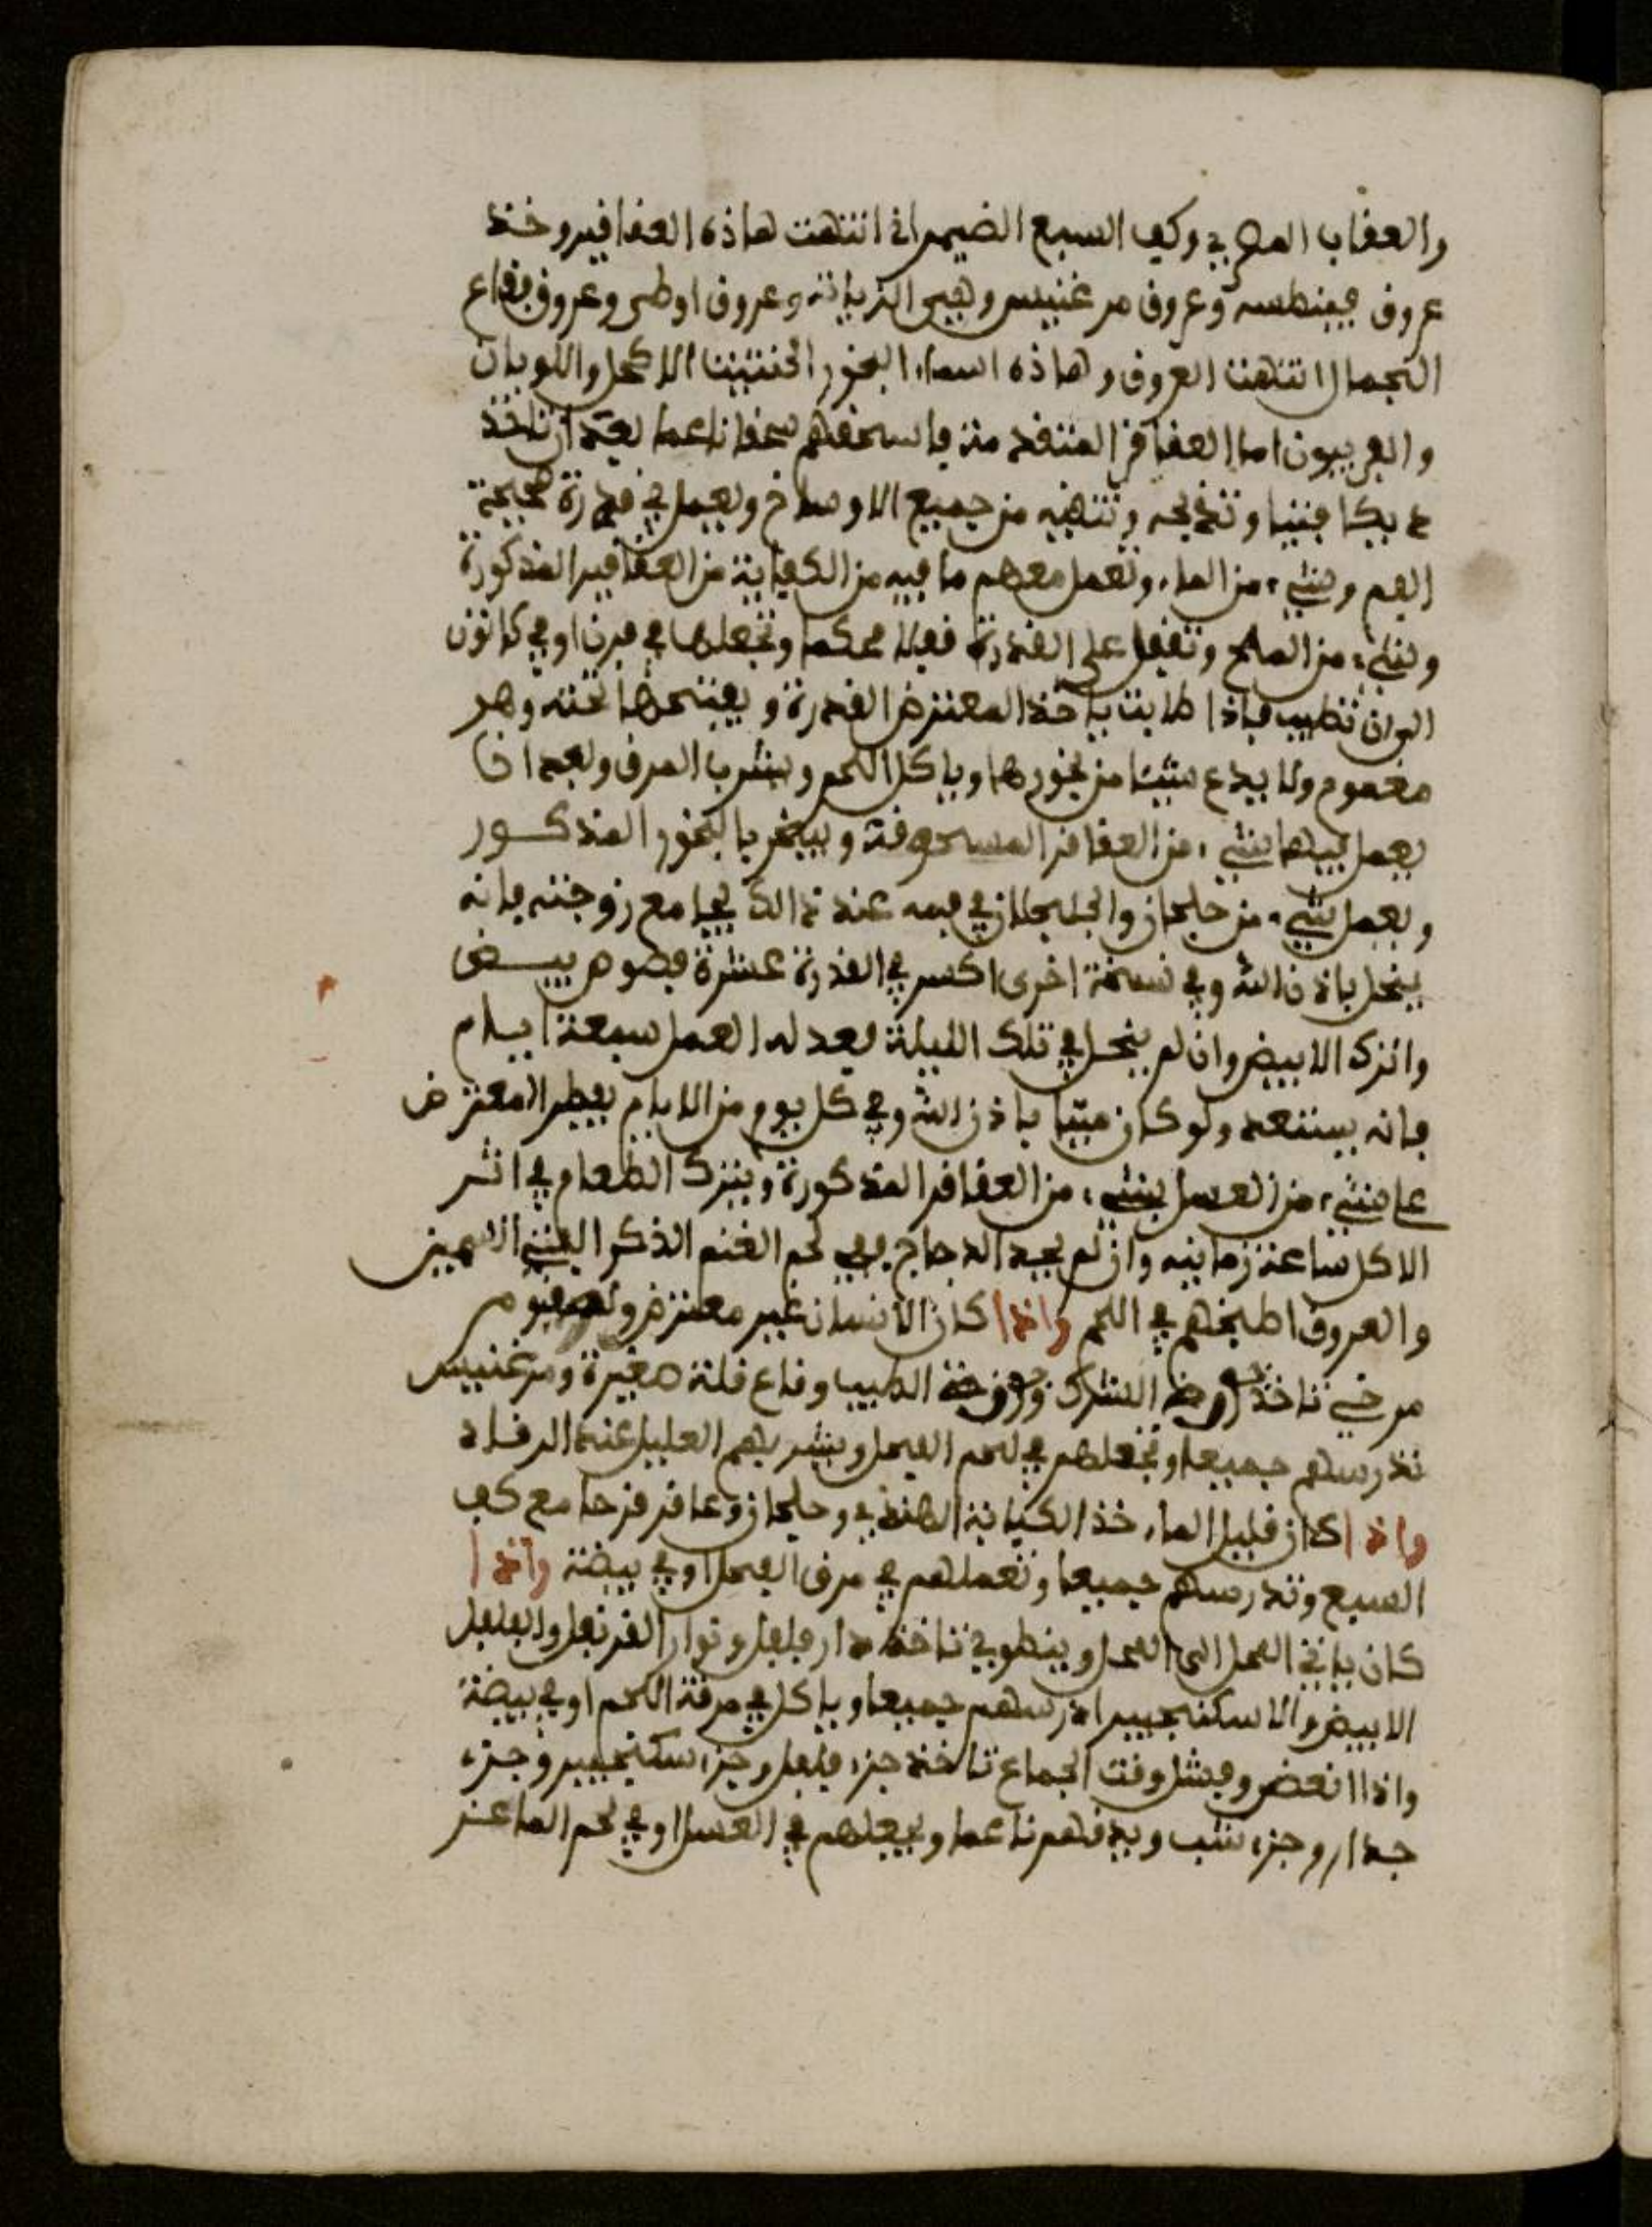 والعقاب المصري وكف السبع الضيمران انتهت هاذه العقاقير وخذ
عروق فينطسه وعروق مرغنيس وهي الزيانة وعروق اوطى وعروق فقاع
الجمال انتهت العروق وهاذه اسماء البخور الحنتيت الاكحل واللوبان
والفربيون اما العقاقر المتقدمة فاسحقهم سحقا ناعما بعد ان تاخذ
ديكا فتيا وتذبحه وتنقيه من جميع الاوساخ ويعمل في قدرة صحيحة
الفم وشيء من الماء وتعمل معهم ما فيه من الكفاية من العقاقير المذكورة
وشيء من الملح وتقفل على القدرة قفلا محكما وتجعلها في فرن او في كانون
الى ان تطيب فاذا طابت ياخذ المعترض القدرة ويفتحها تحته وهو
مغموم ولا يدع شيئا من بخورها وياكل اللحم ويشرب المرق وبعد ان
يعمل فيها شيء من العقاقر المسحوقة ويبخر بالبخور المذكور
ويعمل شيء من خلجان والجلجلان في فمه عند ذالك يجامع زوجته فانه
ينحل باذن الله وفي نسخة اخرى اكسر في القدرة عشرة فصوص بيض
واترك الابيض وان لم ينحل في تلك الليلة فعد له العمل سبعة ايام
فانه يستنعد ولو كان ميتا باذن الله وفي كل يوم من الايام يفطر المعترض
على شيء من العسل بشيء من العقاقر المذكورة ويترك الطعام في اثر
الاكل ساعة زمانية وان لم يجد الدجاج ففي لحم الغنم الذكر الفتي السمين
والعروق اطبخهم في اللحم واذا كان الانسان غير معترض
مرخي تاخذ جوزة الشرك وجوزة الطيب وقاع قلة صغيرة ومرغنيس
تدرسهم جميعا وتجعلهم في لحم الفحل ويشربهم العليل عند الرقاد
واذا كان قليل الماء خذ الكبابة الهندي وخلجان وعاقر قرحا مع كف
السبع وتدرسهم جميعا وتعملهم في مرق الفحل او في بيضة واذا
كان ياتي الفحل الى الفحل وينطوي تاخذ دار فلفل ونوار القرنفل والفلفل
الابيض والاسكنجبير ادرسهم جميعا وياكل في مرقة اللحم او في بيضة
واذا انعض وفشل وقت الجماع تاخذ جزء فلفل وجزء سكنجبير وجزء
جدار وجزء شب ويدقهم ناعما ويجعلهم في العسل او في لحم الماعز